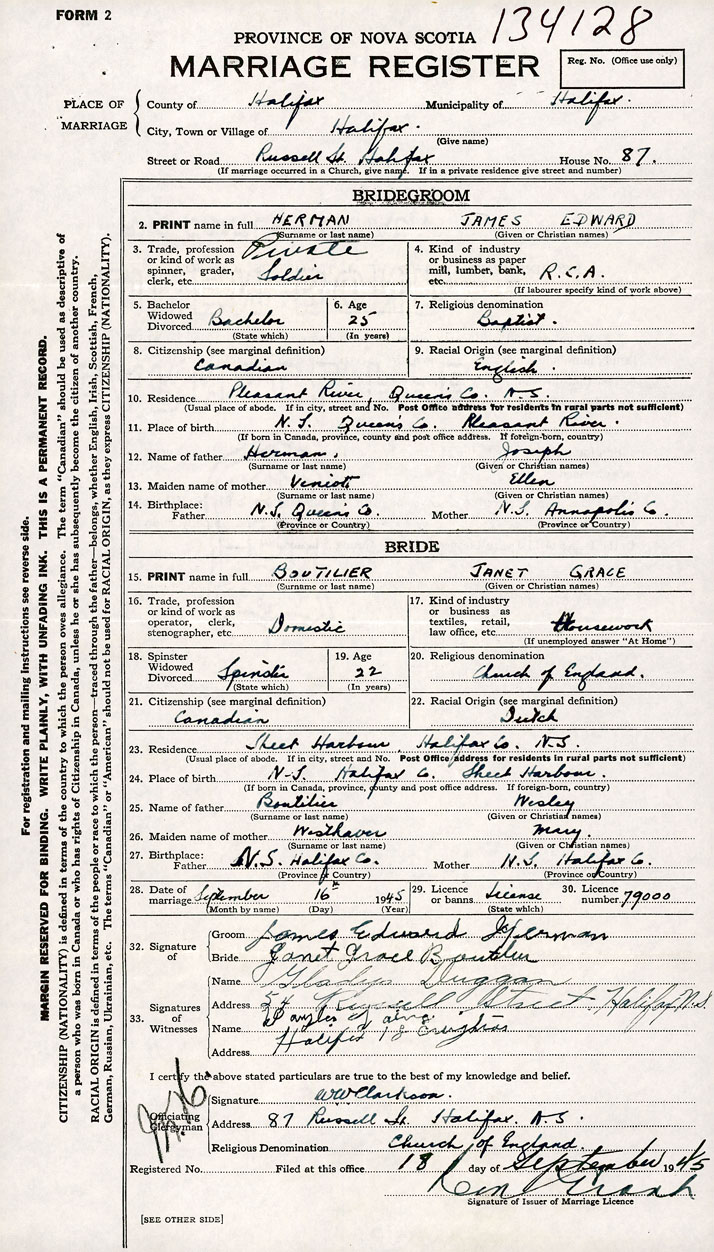 FORM 2
134128
PROVINCE OF NOVA SCOTIA
MARRIAGE REGISTER
Reg. No. (Office use only)
PLACE OF MARRIAGE
County of Halifax Municipality of Halifax.
City, Town or Village of Halifax.
(Give name)
Street or Road Russell St. Halifax House No. 87.
(If marriage occurred in a Church, give name. If in a private residence give street and number)
BRIDEGROOM
2. PRINT name in full HERMAN JAMES EDWARD
(Surname or last name) (Given or Christian names)
3. Trade, profession or kind of work as spinner, grader, clerk, etc. Private Soldier
4. Kind of industry or business as paper mill, lumber, bank, etc. R.C.A.
(If labourer specify kind of work above)
5. Bachelor Widowed Divorced Bachelor
(State which)
6. Age 25
(In years)
7. Religious denomination
Baptist.
8. Citizenship (see marginal definition)
Canadian
9. Racial Origin (see marginal definition)
English.
10. Residence Pleasant River, Queen's Co. N.S.
(Usual place of abode. If in city, street and No. Post Office address for residents in rural parts not sufficient)
11. Place of birth N.S. Queen's Co. Pleasant River.
(If born in Canada, province, county and post office address. If foreign-born, country)
12. Name of father Herman. Joseph
(Surname or last name) (Given or Christian names)
13. Maiden name of mother Veniott Ellen
(Surname or last name) (Given or Christian names)
14. Birthplace: Father N.S. Queen's Co. Mother N.S. Annapolis Co.
(Province or Country) (Province or Country)
BRIDE
15. PRINT name in full BOUTILIER JANET GRACE
(Surname or last name) (Given or Christian names)
16. Trade, profession or kind of work as operator, clerk, stenographer, etc. Domestic
17. Kind of industry or business as textiles, retail, law office, etc. Housework
(If unemployed answer "At Home")
18. Spinster Widowed Divorced Spinster
(State which)
19. Age 22
(In years)
20. Religious denomination
Church of England.
21. Citizenship (see marginal definition)
Canadian
22. Racial Origin (see marginal definition)
Dutch
23. Residence Sheet Harbour, Halifax Co. N.S.
(Usual place of abode. If in city, street and No. Post Office address for residents in rural parts not sufficient)
24. Place of birth N.S. Halifax Co. Sheet Harbour.
(If born in Canada, province, county and post office address. If foreign-born, country)
25. Name of father Boutilier Wesley
(Surname or last name) (Given or Christian names)
26. Maiden name of mother Westhaver Mary.
(Surname or last name) (Given or Christian names)
27. Birthplace: Father N.S. Halifax Co. Mother N.S. Halifax Co.
(Province or Country) (Province or Country)
28. Date of marriage September 16th 1945
(Month by name) (Day) (Year)
29. Licence or banns License
(State which)
30. Licence number 79000
32. Signature of
Groom James Edward Herman
Bride Janet Grace Boutilier
33. Signatures of Witnesses
Name Gladys Duggan
Address 54 Russell Street Halifax N.S
Name
Address Halifax 18 Creighton
I certify the above stated particulars are true to the best of my knowledge and belief.
Officiating Clergyman
Signature WW Clarkson.
Address 87 Russell St. Halifax. N.S.
Religious Denomination Church of England.
Registered No. Filed at this office 18 day of September 1945
Signature of Issuer of Marriage Licence
[SEE OTHER SIDE]
For registration and mailing instructions see reverse side.
MARGIN RESERVED FOR BINDING. WRITE PLAINLY, WITH UNFADING INK. THIS IS A PERMANENT RECORD.
CITIZENSHIP (NATIONALITY) is defined in terms of the country to which the person owes allegiance. The term "Canadian" should be used as descriptive of
a person who was born in Canada or who has rights of Citizenship in Canada, unless he or she has subsequently become the citizen of another country.
RACIAL ORIGIN is defined in terms of the people or race to which the person—traced through the father—belongs, whether English, Irish, Scottish, French,
German, Russian, Ukrainian, etc. The terms "Canadian" or "American" should not be used for RACIAL ORIGIN, as they express CITIZENSHIP (NATIONALITY).